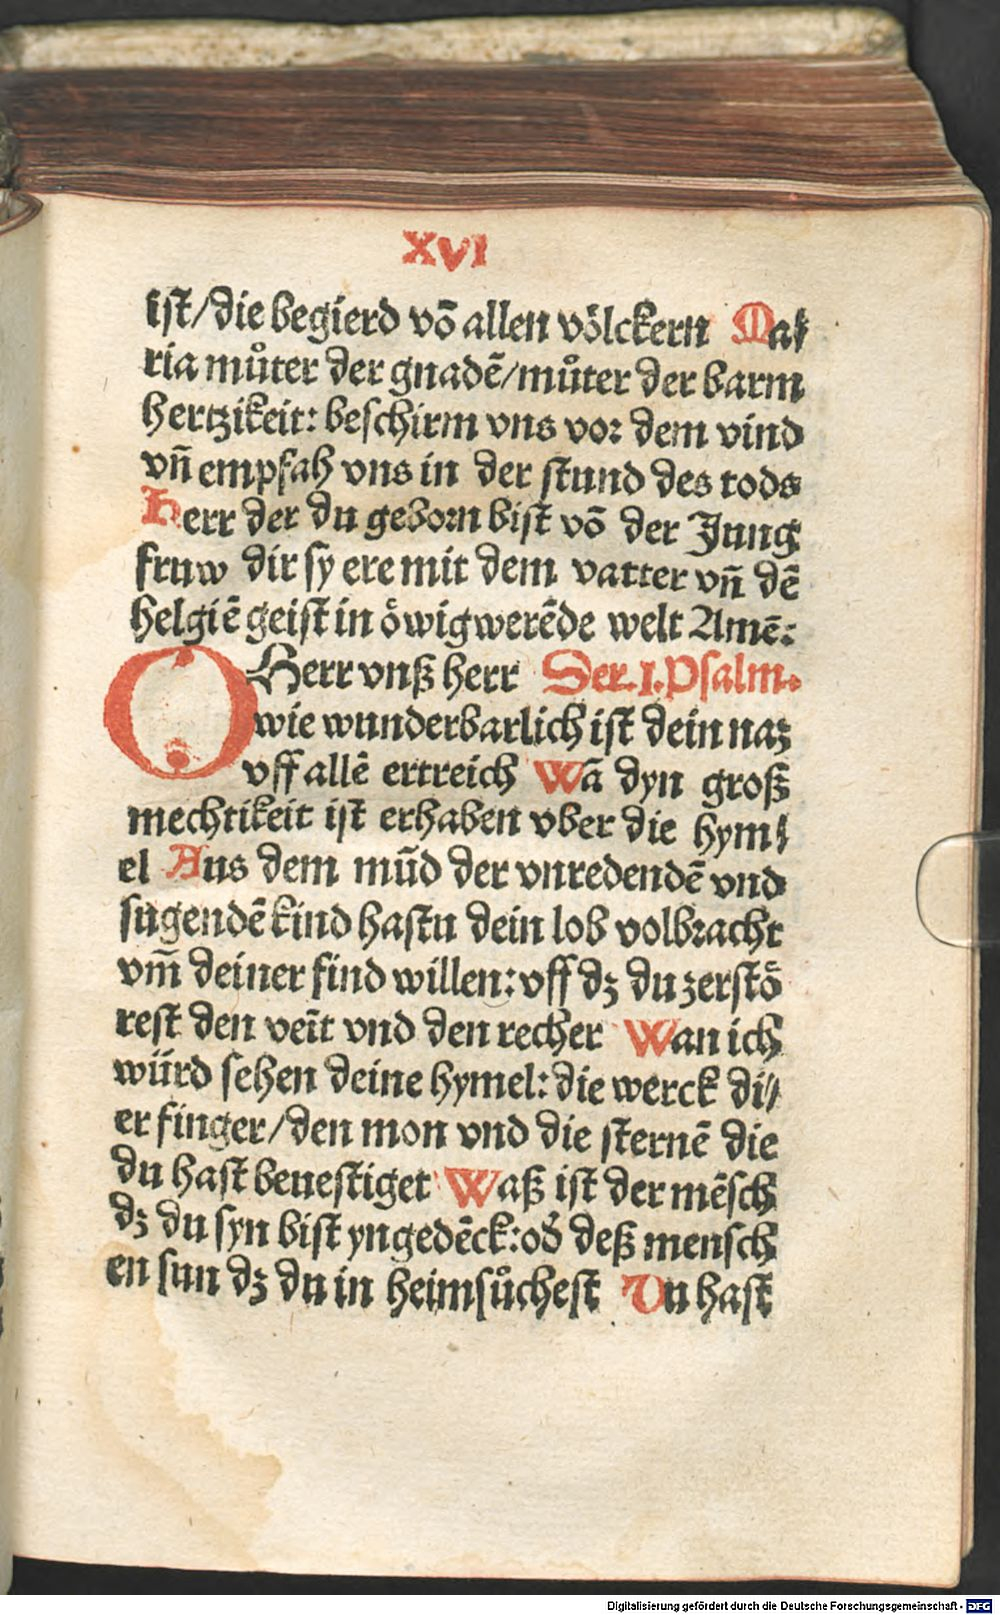 XVI
ist/die begierd vō allen völckern Ma⸗
ria můter der gnadē/můter der barm
hertzikeit: beschirm vns vor dem vind
vñ empfah vns in der stund des tods
Herr der du geborn bist vō der Jung
fruw dir sy ere mit dem vatter vñ dē
helgiē geist in öwig werēde welt Amē:
O Herr vnß herr Der .I. Psalm.
wie wunderbarlich ist dein naz
vff allē ertreich Wā dyn groß
mechtikeit ist erhaben vber die hym⸗
el Aus dem mūd der vnredendē vnd
sugendē kind hastu dein lob volbracht
vm̄ deiner find willen: vff dz du zerstö
rest den veīt vnd den recher Wan ich
würd sehen deine hymel: die werck di⸗
er finger/den mon vnd die sternē die
du hast beuestiget Waß ist der mēsch
dz du syn bist yngedēck: od̕ deß mensch
en sun dz du in heimsůchest Du hast
Digitalisierung gefördert durch die Deutsche Forschungsgemeinschaft - DFG